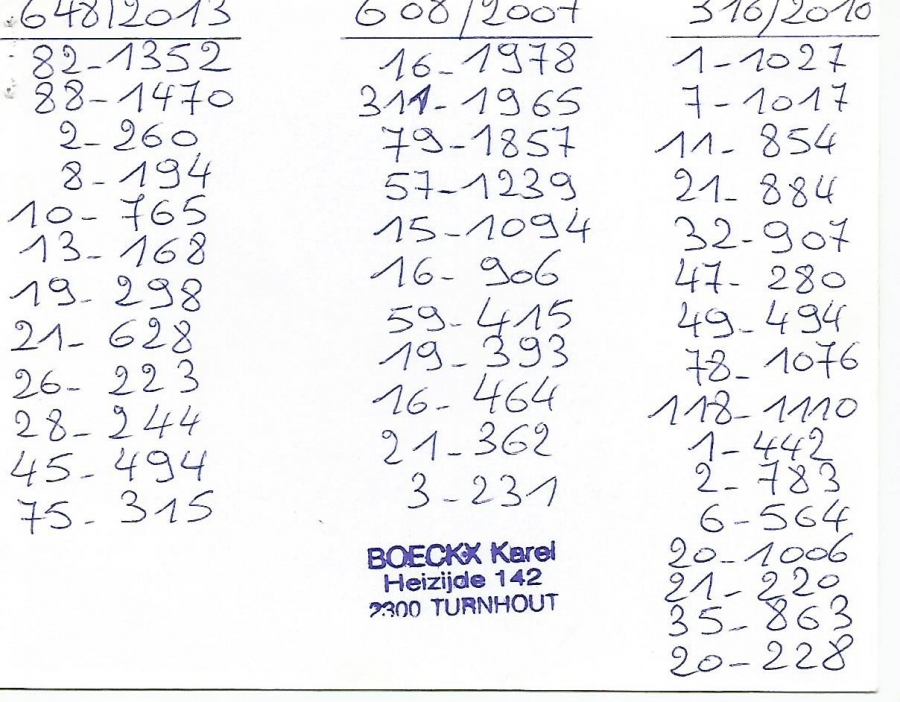 648/2013
82-1352
88-1470
2-260
8-194
10-765
13-168
19-298
21-628
26-223
28-244
45-494
75-315
608/2007
16-1978
311-1965
79-1857
57-1239
15-1094
16-906
59-415
19-393
16-464
21-362
3-231
BOECKX Karel
Heizijde 142
2300 TURNHOUT
316/2010
1-1027
7-1017
11-854
21-884
32-907
47-280
49-494
78-1076
118-1110
1-442
2-783
6-564
20-1006
21-220
35-863
20-228